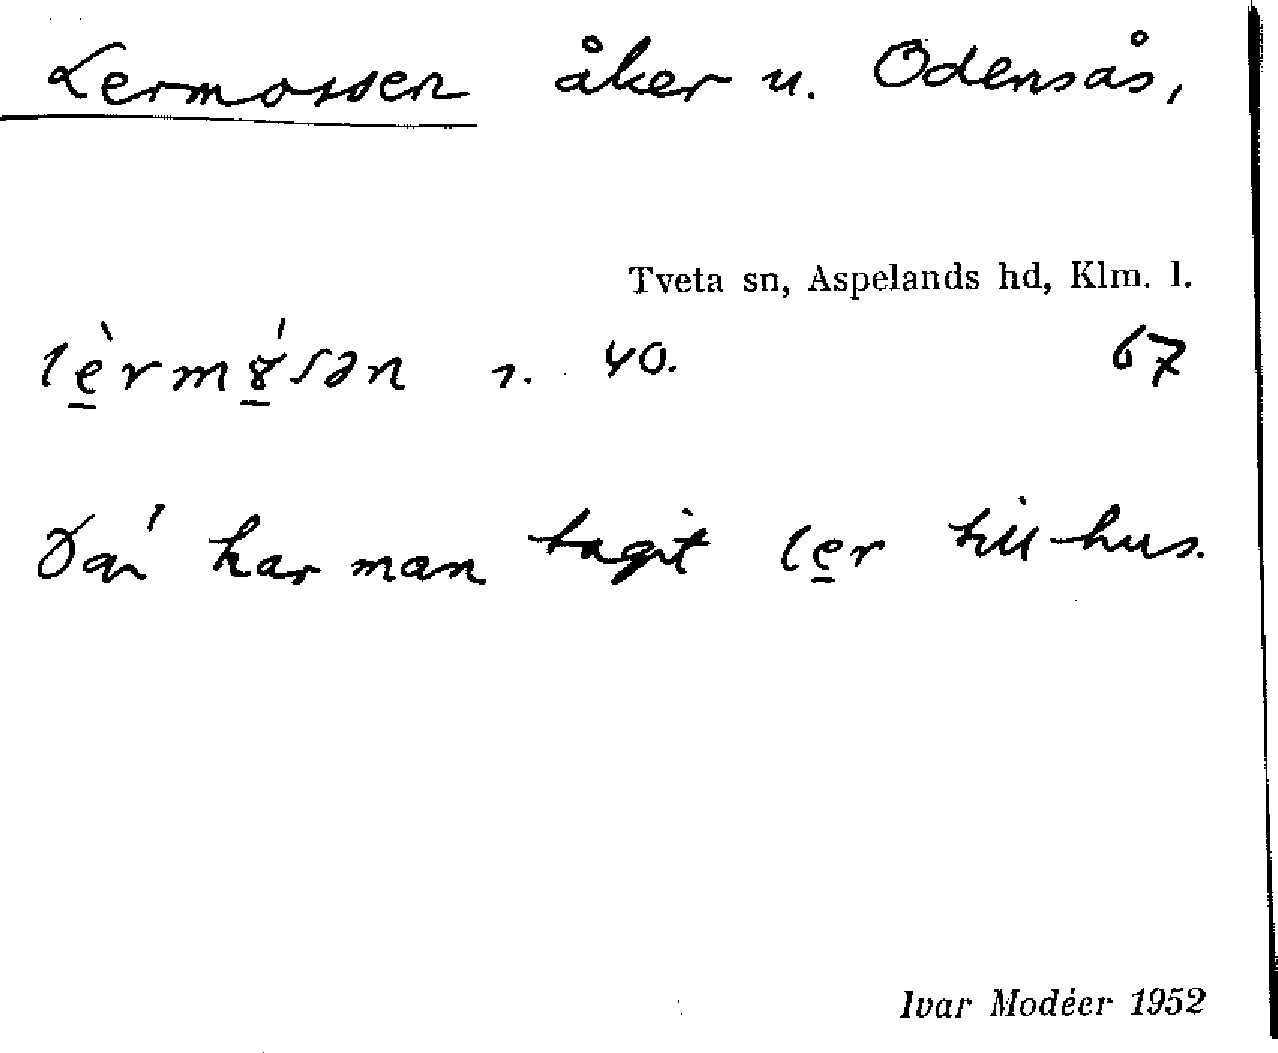 Lermossen åker u. Odensås,
Tveta sn, Aspelands hd, Klm. l.
40. 67
har man tagit ler till hus.
Ivar Modéer 1952